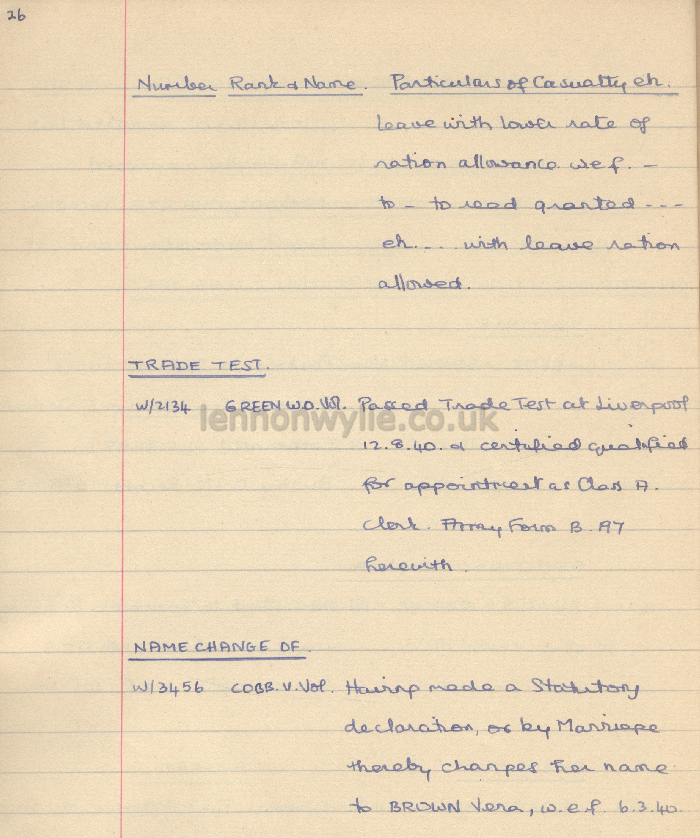 26
Number Rank & Name. Particulars of Casualty etc.
leave with lower rate of
ration allowance w e f. -
to - to read granted ---
etc.... with leave ration
allowed.
TRADE TEST.
W/2134 GREEN W.D. Vol. Passed Trade Test at Liverpool
lennonwylie.co.uk
12.8.40. & certified qualified
for appointment as Class A.
Clerk. Army Form B. A7
herewith.
NAME CHANGE OF.
W/3456 COBB. V. Vol. Having made a Statutory
declaration, or by Marriage
thereby changes her name
to BROWN Vera, w.e.f. 6.3.40.